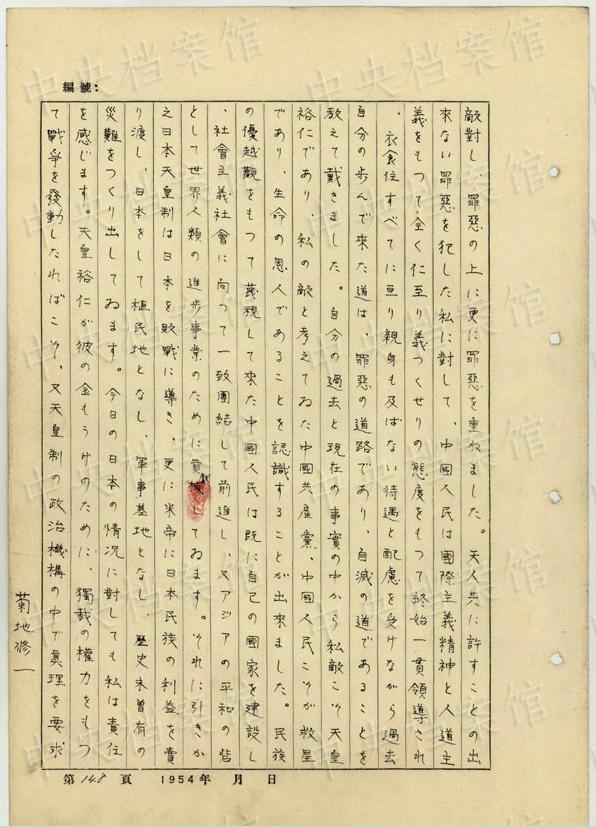 編號：
敵對し、罪惡の上に更に罪惡を重ねました。天人共に許すことの出
來ない罪惡を犯した私に對して、中國人民は國際主義精神と人道主
義をもつて全く仁至り義つくせりの態度をもつて終始一貫領導され
、衣食住すべてに亘り親身も及ばない待遇と配慮を受けながら過去
自分の歩んで來た道は、罪惡の道路であり、自滅の道であることを
教えて戴きました。自分の過去と現在の事實の中から私敵こそ天皇
裕仁であり、私の敵と考えてゐた中國共産黨、中國人民こそが救星
であり、生命の恩人であることを認識することが出來ました。民族
の優越觀をもつて蔑視して來た中國人民は既に自己の國家を建設し
、社會主義社會に向つて一致團結して前進し、又アジアの平和の砦
として世界人類の進步事業のために貢獻してゐます。それに引きか
え日本天皇制は日本を敗戰に導き、更に米帝に日本民族の利益を賣
り渡し、日本をして植民地となし、軍事基地となし、歷史未曾有の
災難をつくり出してゐます。今日の日本の情況に對しても私は責任
を感じます。天皇裕仁が彼の金もうけのために、獨裁の權力をもつ
て戰爭を發動したればこそ、又天皇制の政治機構の中で眞理を要求
菊地修一
第 148 頁 1954年 月 日
中央档案馆